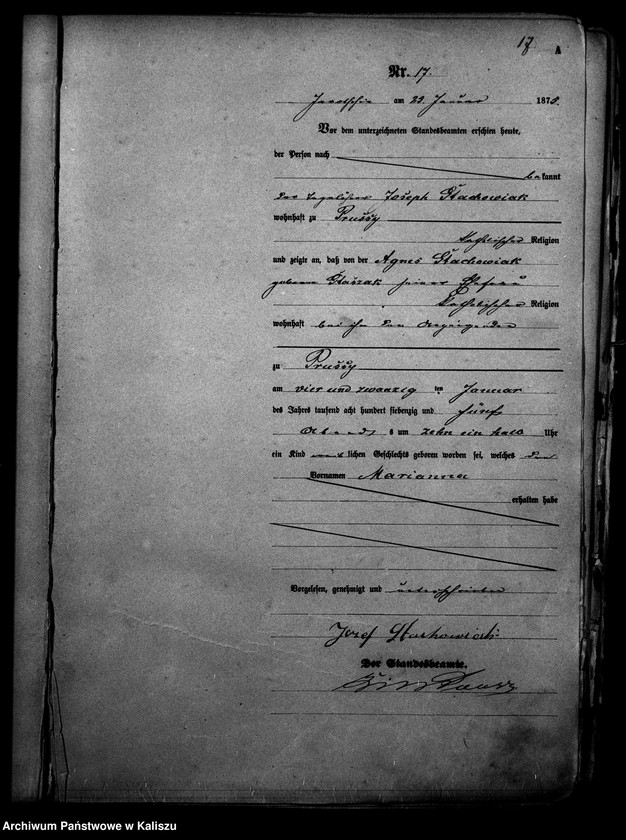 17
A
Nr. 17.
am 29. Januar 1875.
Vor dem unterzeichneten Standesbeamten erschien heute,
der Person nach
bekannt
der Tagelöhner Joseph Stachowiak
wohnhaft zu Prussy
katholischer Religion
und zeigte an, daß von der Agnes Stachowiak
geborene Staszak seiner Ehefrau
katholischer Religion
wohnhaft bei ihm dem Anzeigenden
zu Prussy
am vier und zwanzig ten Januar
des Jahres tausend acht hundert siebenzig und fünf
Abends um zehn ein halb Uhr
ein Kind weiblichen Geschlechts geboren worden sei, welches den
Vornamen Marianna
erhalten habe
Vorgelesen, genehmigt und unterschrieben
Josef
Der Standesbeamte.
Archiwum Państwowe w Kaliszu